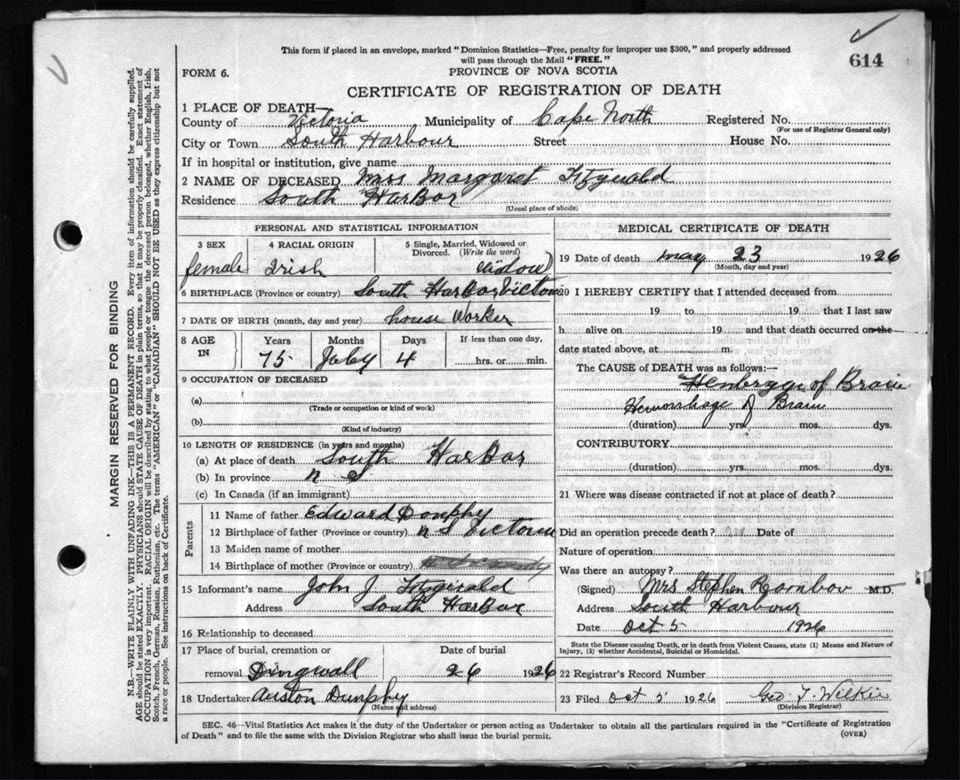 614
This form if placed in an envelope, marked "Dominion Statistics—Free, penalty for improper use $300," and properly addressed
will pass through the Mail "FREE."
FORM 6.
PROVINCE OF NOVA SCOTIA
CERTIFICATE OF REGISTRATION OF DEATH
1 PLACE OF DEATH—
County of Victoria Municipality of Cape North Registered No.
(For use of Registrar General only)
City or Town South Harbour Street House No.
If in hospital or institution, give name
2 NAME OF DECEASED Mrs Margaret Fitzgerald
Residence South Harbor
(Usual place of abode)
PERSONAL AND STATISTICAL INFORMATION
3 SEX 4 RACIAL ORIGIN 5 Single, Married, Widowed or
Divorced. (Write the word)
female Irish Widow
6 BIRTHPLACE (Province or country) South Harbor Victoria
7 DATE OF BIRTH (month, day and year) house Worker
8 AGE IN Years Months Days If less than one day,
75 July 4 hrs. or min.
9 OCCUPATION OF DECEASED
(a)
(Trade or occupation or kind of work)
(b)
(Kind of industry)
10 LENGTH OF RESIDENCE (in years and months)
(a) At place of death South Harbor
(b) In province N S
(c) In Canada (if an immigrant)
Parents
11 Name of father Edward Donphy
12 Birthplace of father (Province or country) N S Victoria
13 Maiden name of mother
14 Birthplace of mother (Province or country)
15 Informant's name John J Fitzgerald
Address South Harbor
16 Relationship to deceased
17 Place of burial, cremation or Date of burial
removal Dingwall 26 1926
18 Undertaker Auston Dunphy
(Name and address)
MEDICAL CERTIFICATE OF DEATH
19 Date of death May 23 1926
(Month, day and year)
20 I HEREBY CERTIFY that I attended deceased from
19 to 19 that I last saw
h alive on 19 and that death occurred on the
date stated above, at m.
The CAUSE of DEATH was as follows:—
of Brain
Hemorrhage of Brain
(duration) yrs. mos. dys.
CONTRIBUTORY
(duration) yrs. mos. dys.
21 Where was disease contracted if not at place of death?
Did an operation precede death? Date of
Nature of operation
Was there an autopsy?
(Signed) Mrs Stephen M.D.
Address South Harbour
Date Oct 5 1926
State the Disease causing Death, or in death from Violent Causes, state (1) Means and Nature of
Injury, (2) whether Accidental, Suicidal or Homicidal.
22 Registrar's Record Number
23 Filed Oct 5 1926 Geo T. Wilkie
(Division Registrar)
SEC. 46—Vital Statistics Act makes it the duty of the Undertaker or person acting as Undertaker to obtain all the particulars required in the "Certificate of Registration
of Death" and to file the same with the Division Registrar who shall issue the burial permit.
(OVER)
MARGIN RESERVED FOR BINDING
N.B.—WRITE PLAINLY WITH UNFADING INK—THIS IS A PERMANENT RECORD. Every item of information should be carefully supplied.
AGE should be stated EXACTLY. PHYSICIANS should STATE CAUSE OF DEATH in plain terms, so that it may be properly classified. Exact statement of
OCCUPATION is very important. RACIAL ORIGIN will be described by stating to what people or tongue the deceased person belonged, whether English, Irish,
Scotch, French, German, Russian, Ruthenian, etc. The terms "AMERICAN" or "CANADIAN" SHOULD NOT BE USED as they express citizenship but not
a race or people. See instructions on back of Certificate.